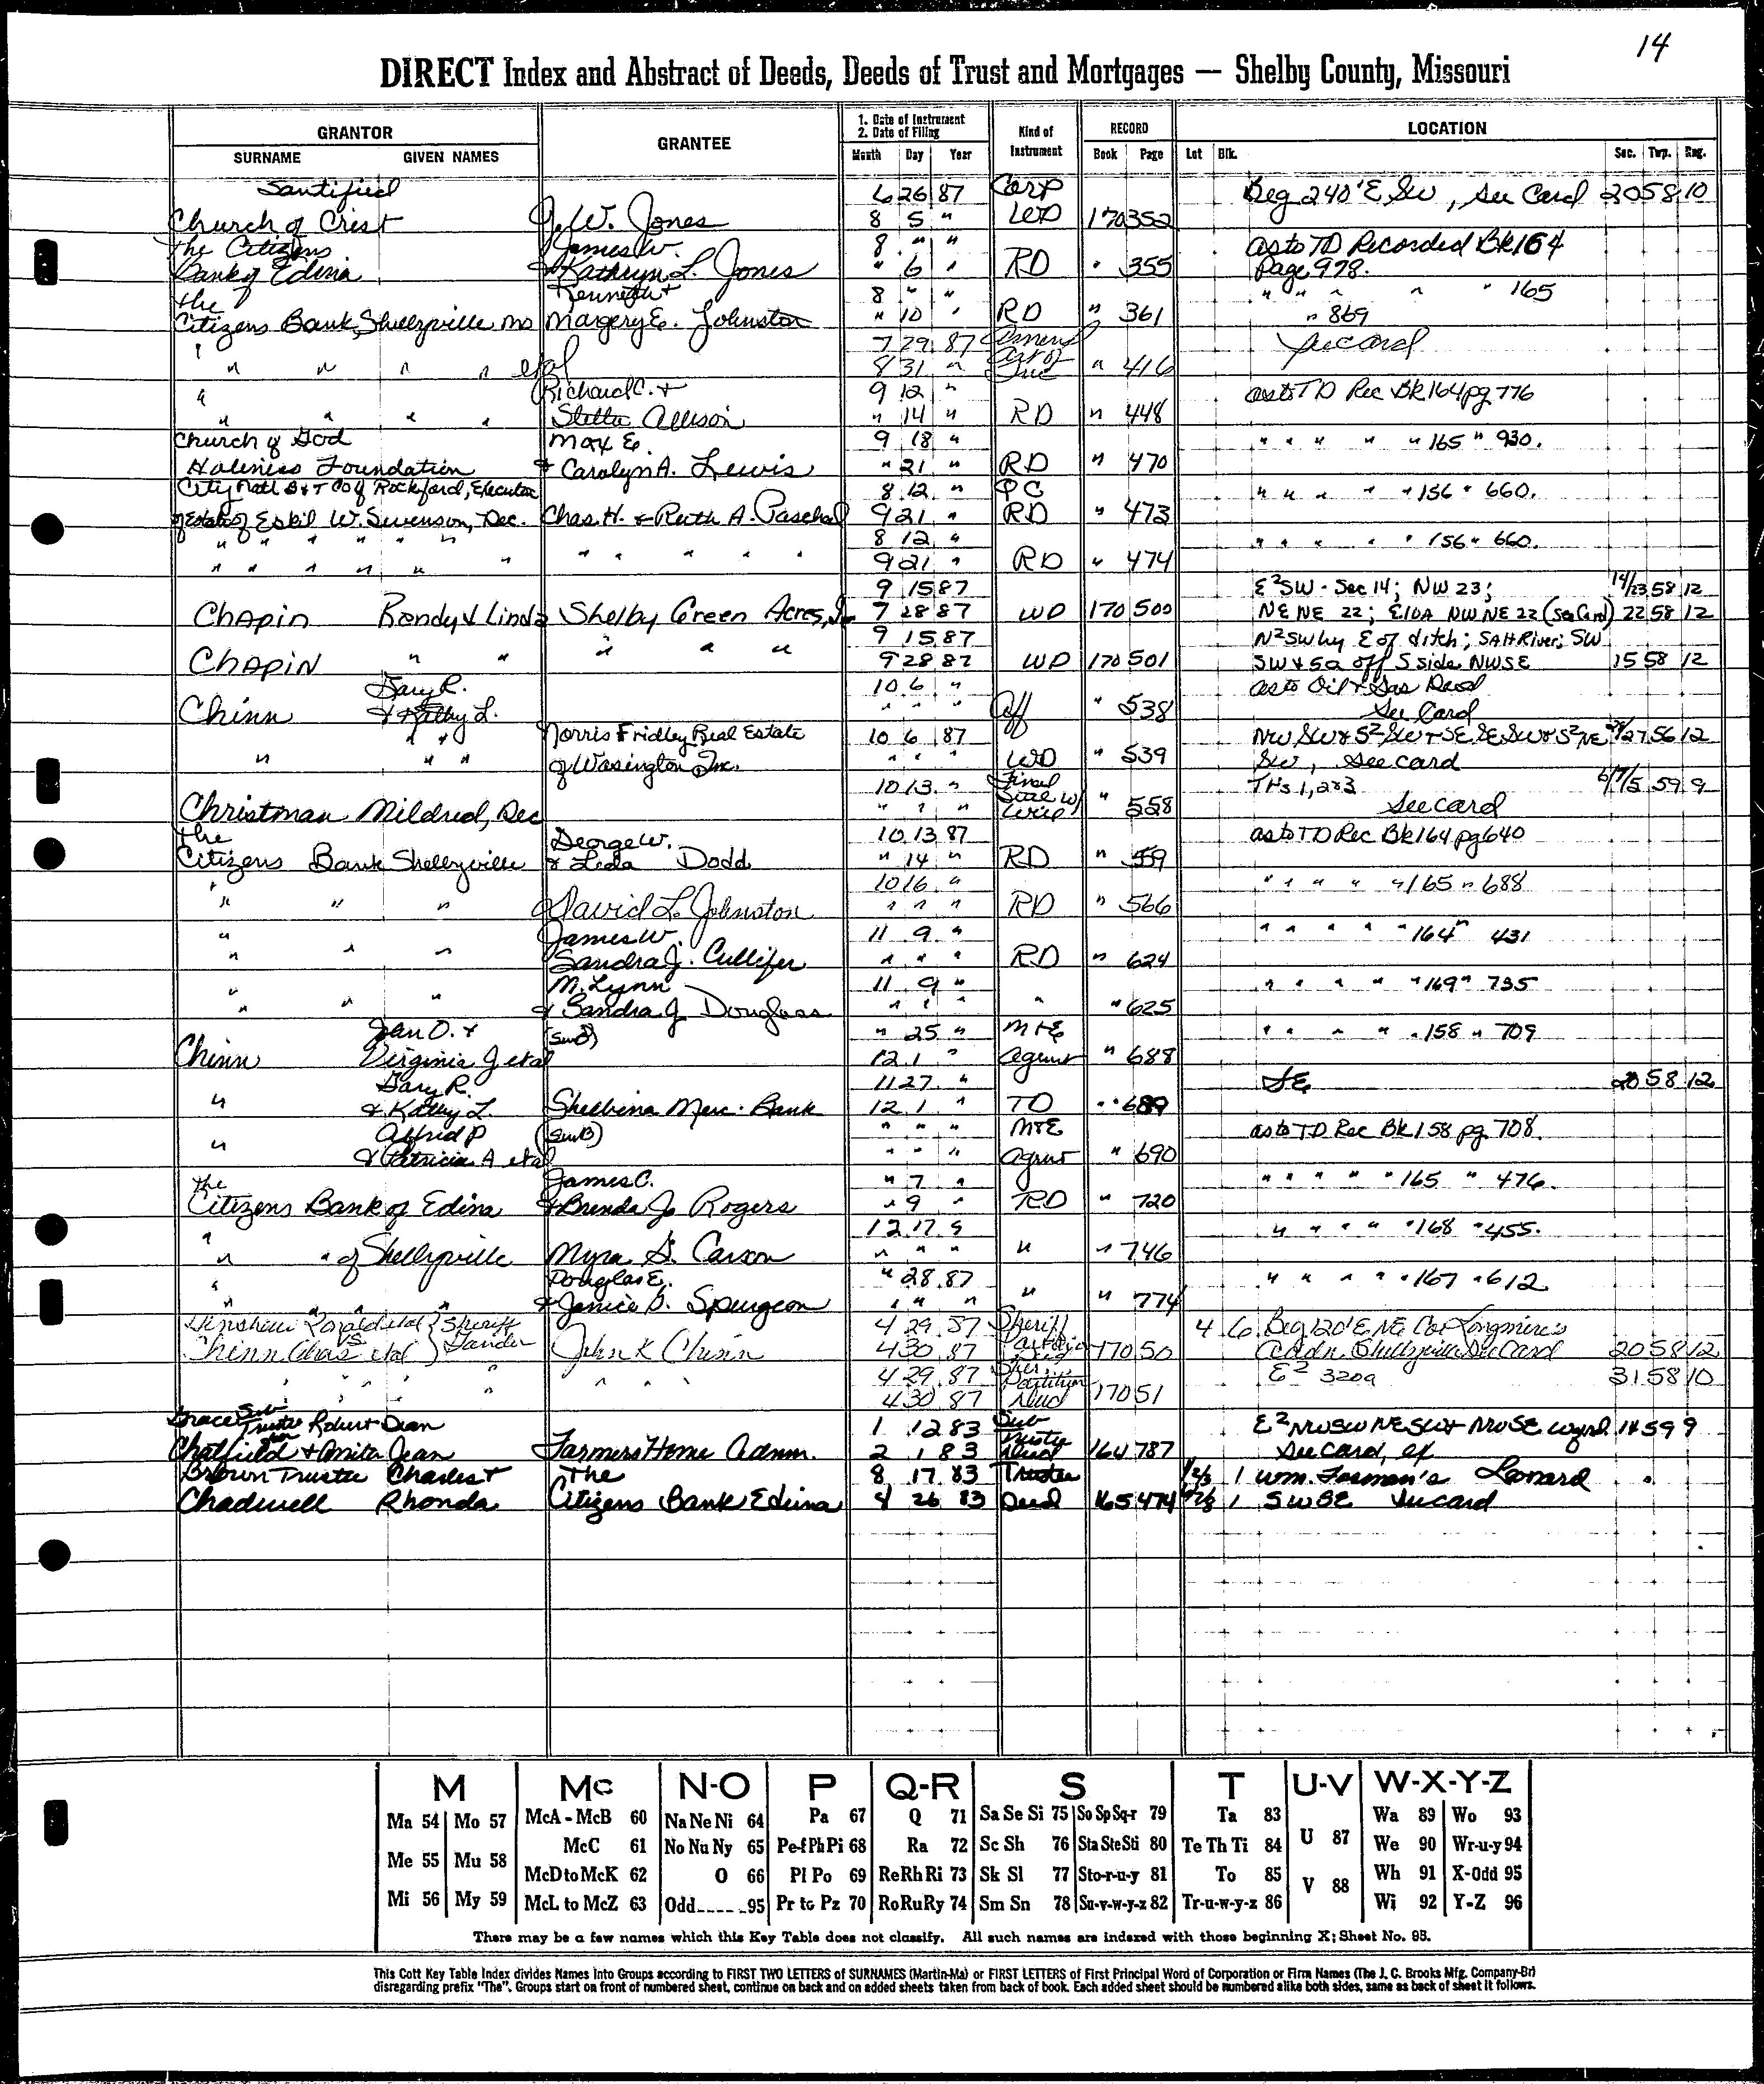 14
DIRECT Index and Abstract of Deeds, Deeds of Trust and Mortgages — Shelby County, Missouri
GRANTOR GRANTEE 1. Date of Instrument 2. Date of Filing Kind of Instrument RECORD LOCATION
SURNAME GIVEN NAMES Month Day Year Book Page Lot Blk. Sec. Twp. Rng.
Santified 6 26 87 Corp Beg 240' E SW, See Card 20 58 10
Church of Crist J. W. Jones 8 5 " WD 170 352
The Citizens James W. 8 " " as to TD Recorded Bk 164
Bank of Edina & Kathryn L. Jones " 6 " RD " 355 Page 978.
the Kenneth + 8 " " " " " " " 165
Citizens Bank, Shelbyville Mo Margery E. Johnston " 10 " RD " 361 " 869
" 7 29 87 See card
" " " " etal 8 31 " " 416
" Richard C. + 9 12 " as to TD Rec Bk 164 pg 776
" " " " Stella Allison " 14 " RD " 448
Church of God Max E. 9 18 " " " " " " 165 " 930.
Holiness Foundation & Carolyn A. Lewis " 21 " RD " 470
City Natl B & T Co of Rockford, Executor 8 12 " QC " " " " " 156 " 660.
of Estate of Eskil W. Swenson, Dec. Chas. H. & Ruth A. Paschal 9 21 " RD " 473
" " " " " " 8 12 " " " " " " 156 " 660.
" " " " " " " " " " " 9 21 " RD " 474
9 15 87 E²SW - Sec 14; NW 23; 14/23 58 12
Chapin Randy & Linda Shelby Green Acres, In 7 28 87 WD 170 500 NE NE 22; E10A NW NE 22 (See Card) 22 58 12
9 15 87 N²SW by E of ditch; SAH River; SW
Chapin " " " " " 9 28 87 WD 170 501 SW & 5a off S side NWSE 15 58 12
Gary R. 10 6 " as to Oil & Gas Deed
Chinn & Kathy L. " " " Aff " 538 See Card
" " Norris Fridley Real Estate 10 6 87 NW SW & S²SW & SE SE SW & S²NE 27 56 12
" " " of Wasington Inc. " " " WD " 539 SW, See card
10 13 " Final THs 1, 2 & 3 59 9
Christman Mildred, Dec " " " " 558 See card
The George W. 10 13 87 as to TD Rec Bk 164 pg 640
Citizens Bank Shelbyville & Leda Dodd " 14 " RD " 559
10 16 " " " " " " 165 " 688
" " " David L. Johnston " " " RD " 566
" James W. 11 9 " " " " " " 164 " 431
" " " Sandra J. Cullifer " " " RD " 624
" M. Lynn 11 9 " " " " " " 169 " 735
" " " & Sandra J Douglass " " " " " 625
Jan O. + (SWB) " 25 " M & E " " " " " 158 " 709
Chinn Virginia J etal 12 1 " Agmt " 688
Gary R. 11 27 " SE 20 58 12
" & Kathy L. Shelbina Merc. Bank 12 1 " TD " " 689
Alfred P (SWB) " " " M&E as to TD Rec Bk 158 pg 708.
" & Patricia A etal " " " Agmt " 690
The James C. " 7 " " " " " " 165 " 476.
Citizens Bank of Edina & Brenda Jo Rogers " 9 " RD " 720
" 12 17 " " " " " " 168 " 455.
" " of Shelbyville Myra G. Carson " " " " " 746
" Douglas E. " 28 87 " " " " " 167 " 612
" " " " & Janice D. Spurgeon " " " " " 774
Hinshaw Ronald etal Sheriff 4 29 87 Sheriff 4 6 Beg 120' E NE Cor Longmire's
vs
Chinn Chas etal John K Chinn 4 30 87 170 50 Addn. Shelbyville See Card 20 58 12
" " " " " " " 4 29 87 Partition E² 320a 31 58 10
4 30 87 Deed 170 51
Grace Sub Trustee Robert Dean 1 12 83 Sub E²NWSW NESW & NWSE 14 59 9
Chatfield & Anita Jean Farmers Home Admn. 2 1 83 Trustee Deed 164 787 See Card, ex
Brown Trustee Charles & The 8 17 83 Trustee 1 Wm. Leonard
Chadwell Rhonda Citizens Bank Edina 8 26 83 Deed 165 474 1 SWSE See card
M Mc N-O P Q-R S T U-V W-X-Y-Z
Ma 54 Mo 57 McA - McB 60 Na Ne Ni 64 Pa 67 Q 71 Sa Se Si 75 So Sp Sq-r 79 Ta 83 Wa 89 Wo 93
Me 55 Mu 58 McC 61 No Nu Ny 65 Pe-f Ph Pi 68 Ra 72 Sc Sh 76 Sta Ste Sti 80 Te Th Ti 84 U 87 We 90 Wr-u-y 94
McD to McK 62 O 66 Pl Po 69 Re Rh Ri 73 Sk Sl 77 Sto-r-u-y 81 To 85 V 88 Wh 91 X-Odd 95
Mi 56 My 59 McL to McZ 63 Odd 95 Pr to Pz 70 Ro Ru Ry 74 Sm Sn 78 Su-v-w-y-z 82 Tr-u-w-y-z 86 Wi 92 Y-Z 96
There may be a few names which this Key Table does not classify. All such names are indexed with those beginning X; Sheet No. 95.
This Cott Key Table Index divides Names Into Groups according to FIRST TWO LETTERS of SURNAMES (Martin-Ma) or FIRST LETTERS of First Principal Word of Corporation or Firm Names (The J. C. Brooks Mfg. Company-Br)
disregarding prefix "The". Groups start on front of numbered sheet, continue on back and on added sheets taken from back of book. Each added sheet should be numbered alike both sides, same as back of sheet it follows.